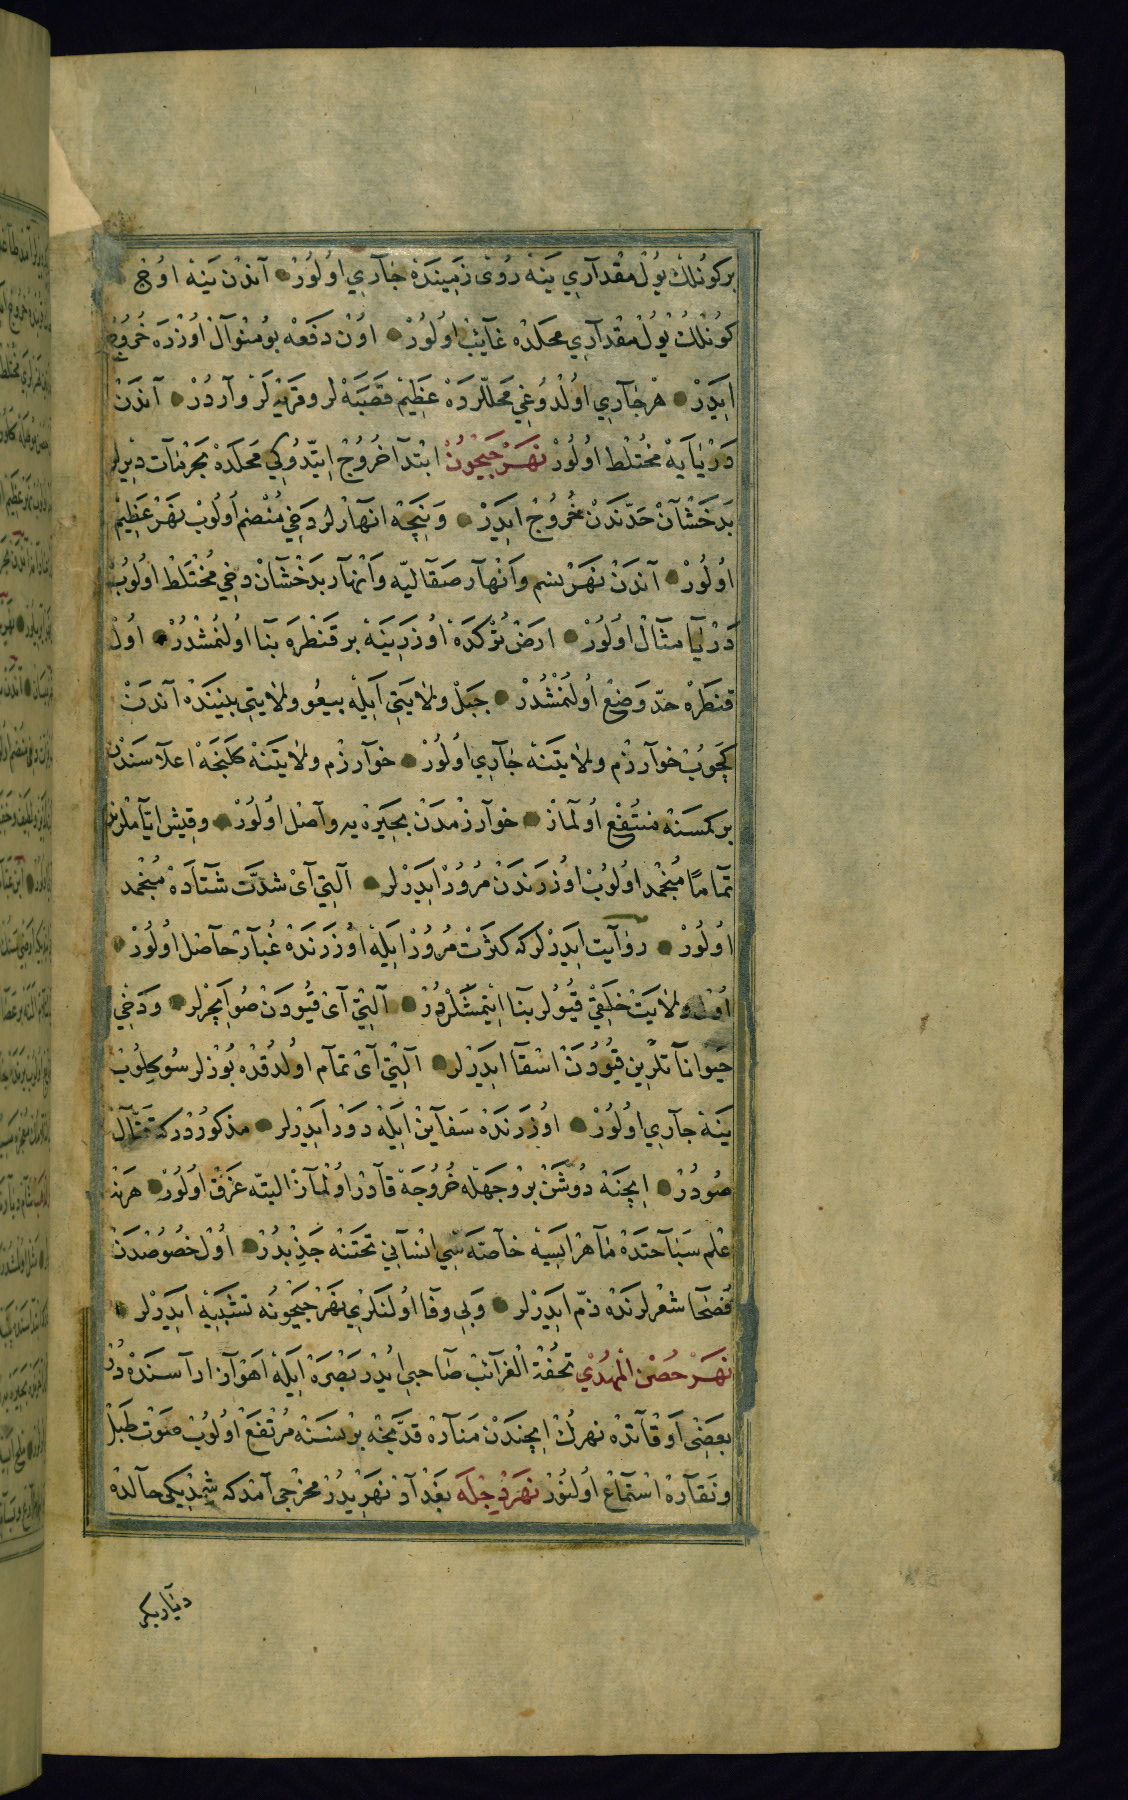 بر كونلك يول مقداري ينه روى زمينده جاري اولور آندن ينه اوج
كونلك يول مقداري محلده غايب اولور اون دفعه بو منوال اوزره خروج
ايدر هر جاري اولدوغي محللرده عظيم قصبه لر و قريه لر واردر آندن
دريايه مختلط اولور نهر جيحون ابتدا خروج ايتدوكي محلده بحر مات ديرلر
بدخشان حدندن خروج ايدر و نيچه انهارلر دخي منضم اولوب نهر عظيم
اولور آندن نهر سم و انهار صقاليه و انهار بدخشان دخي مختلط اولوب
دريا مثال اولور ارض تركده اوزرينه بر قنطره بنا اولنمشدر اول
قنطره حد وضع اولنمشدر جبل ولايتي ايله بيعو ولايتي بيننده آندن
كچوب خوارزم ولايتنه جاري اولور خوارزم ولايتنه كلنجه اعلاسندن
بر كمسنه منتفع اولماز خوارزمدن بحيره يه واصل اولور و قيش ايامنده
تماما منجمد اولوب اوزرندن مرور ايدرلر آلتي آى شدت شتاده منجمد
اولور روايت ايدرلر كه كثرت مرور ايله اوزرنده غبار حاصل اولور
اول ولايت خلقي قيولر بنا ايتمشلردر آلتي آى قيودن صو ايچرلر و دخي
حيواناتلرين قيودن اسقا ايدرلر آلتي آى تمام اولدقده بوزلر سوكلوب
ينه جاري اولور اوزرنده سفاين ايله دور ايدرلر مذكوردر كه قتال
صودر ايچنه دوشن بر وجهله خروجه قادر اولماز البته غرق اولور هرنه
علم سباحتده ماهر ايسه خاصه سي انساني تحتنه جذبدر اول خصوصدن
فصحا شعرلرنده ذم ايدرلر و بي وفا اولنلري نهر جيحونه تشبيه ايدرلر
نهر حصن المهدي تحفة الغرائب صاحبي ايدر بصره ايله اهواز اراسنده در
بعضي اوقاتده نهرك ايچندن مناره قدنجه بر نسنه مرتفع اولوب صوت طبل
و نقاره استماع اولنور نهر دجله بغداد نهريدر مخرجي آمد كه شمديكي حالده
دياربكر